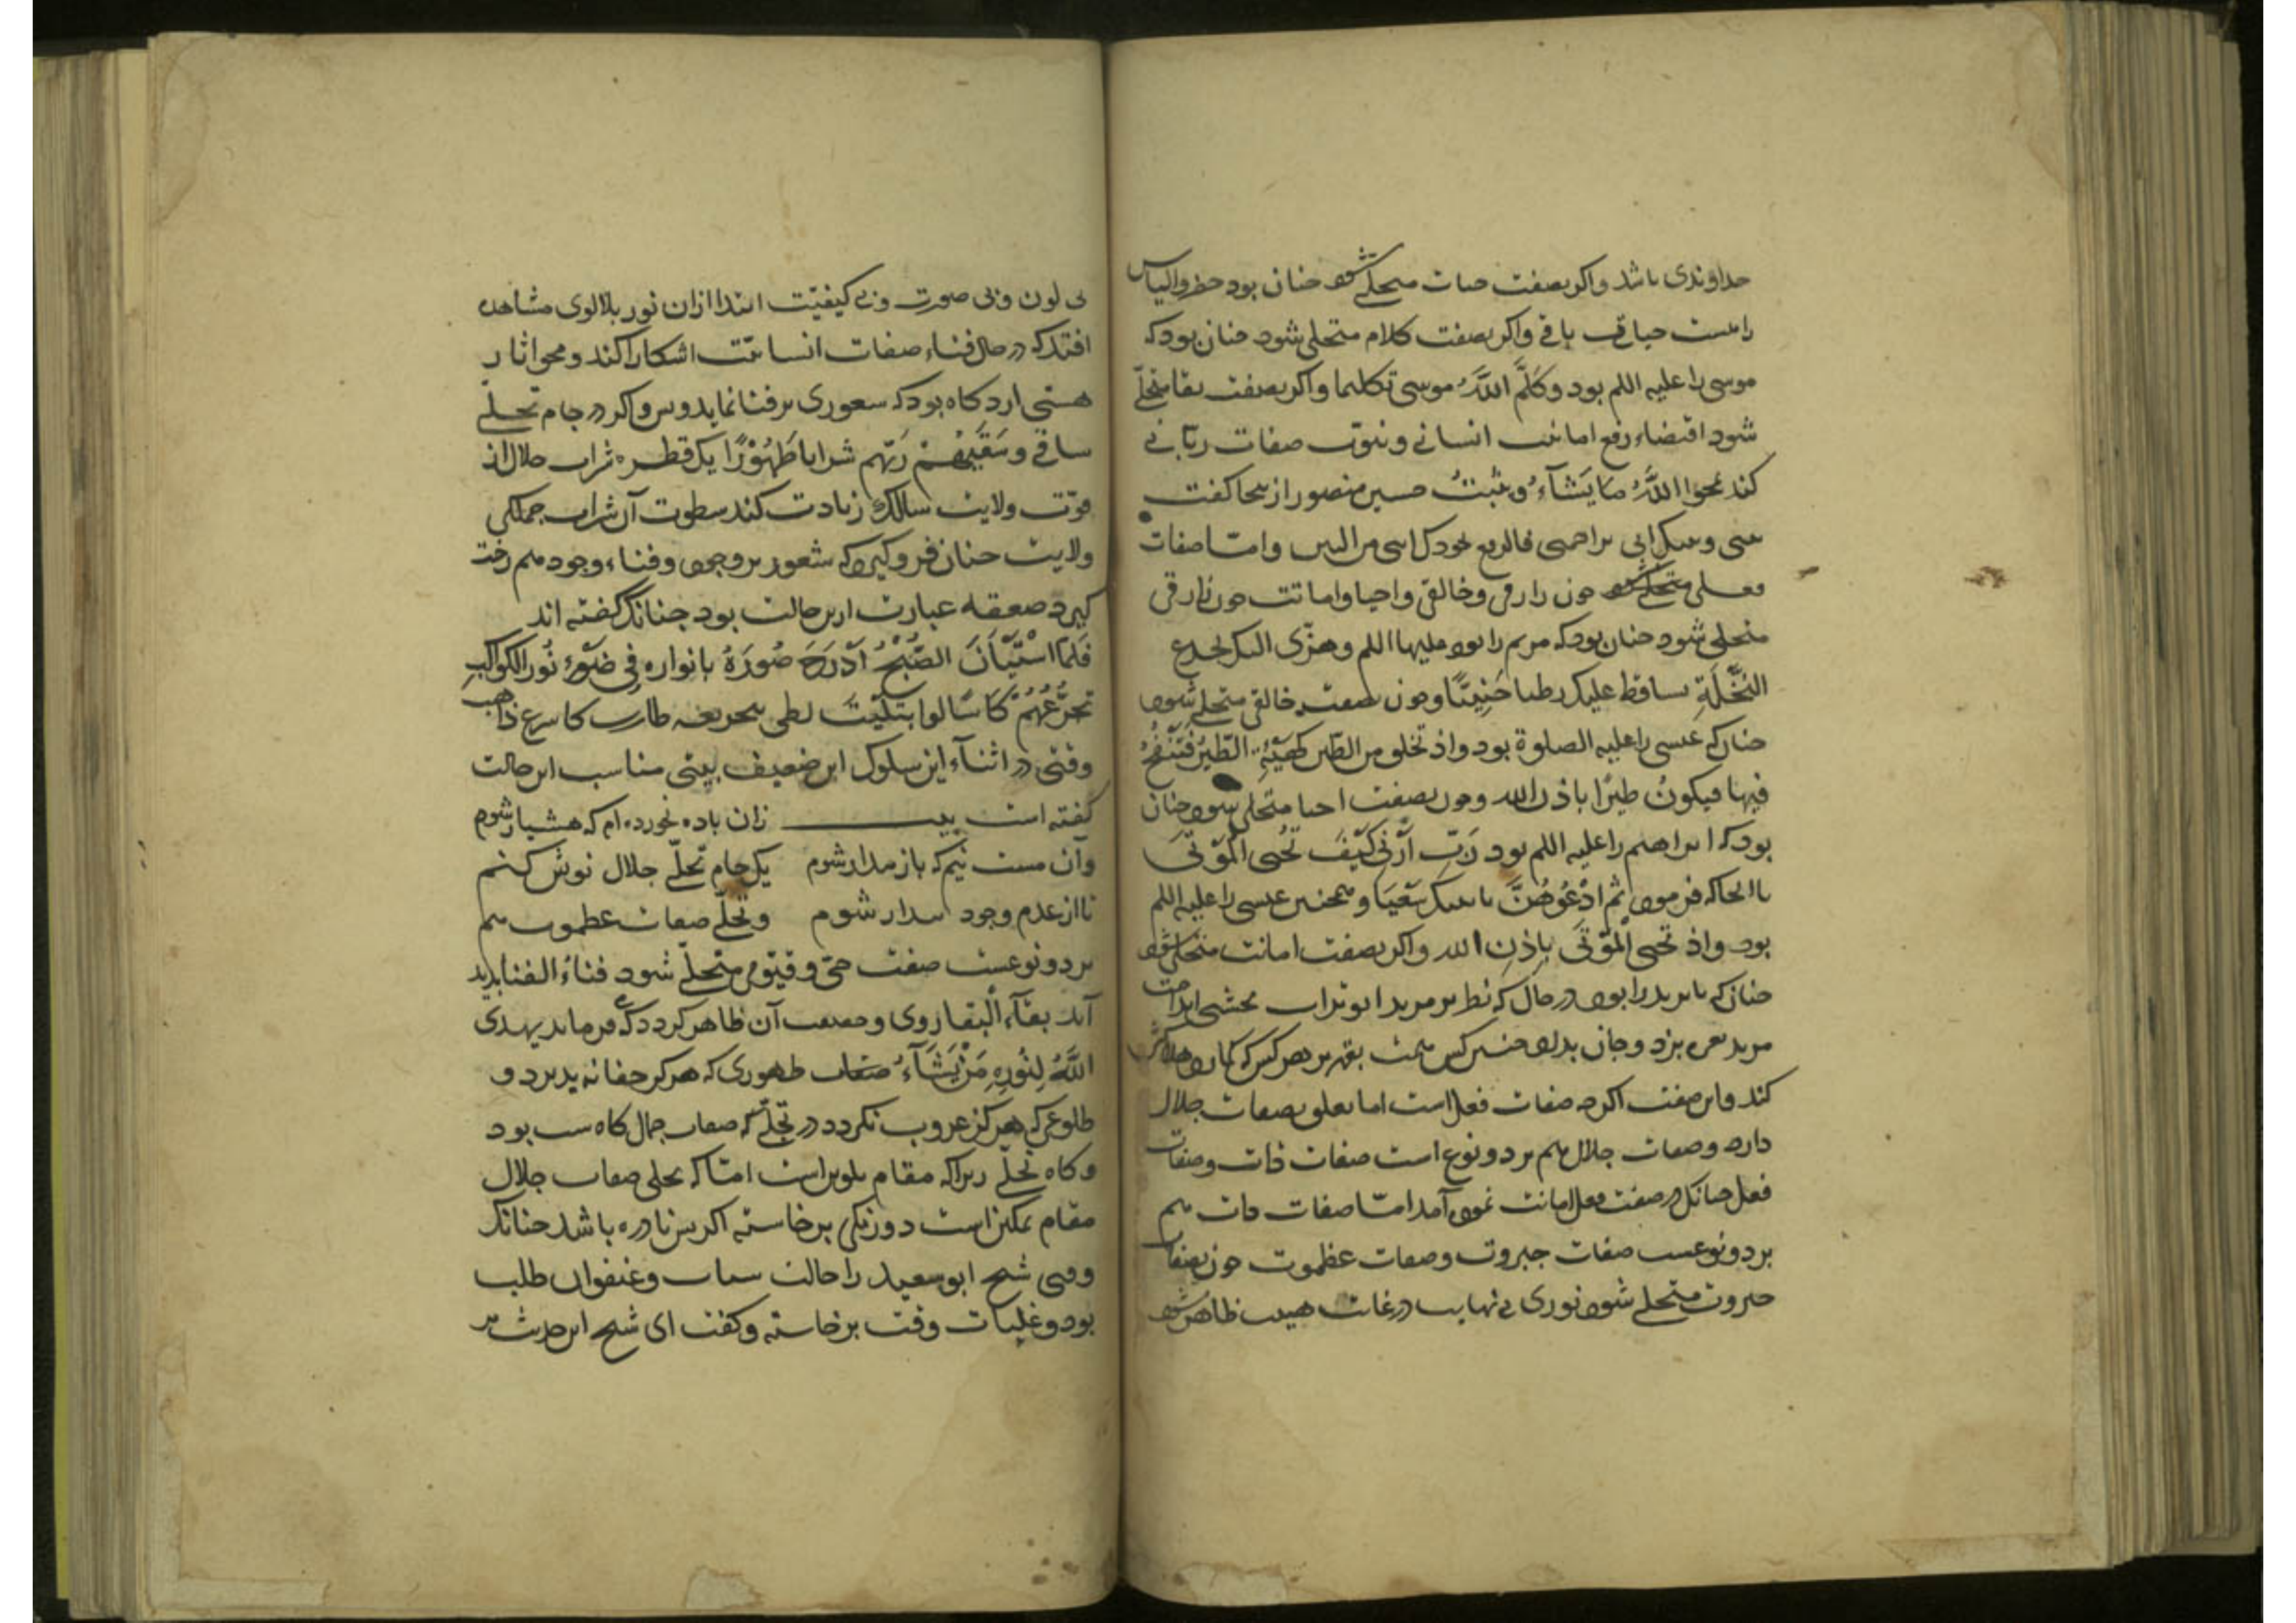 خداوندی باشد واکر بصفت حیات متجلی شود چنان بود خضر والیاس
راست حیاتی باقی واکر بصفت کلام متجلی شود چنان بود که
موسی را علیه السلم بود وَکَلَّمَ اللَّهُ موسی تکلیما واکر بصفت بقا متجلّی
شود اقتضاء رفع انسانی و ثبوت صفات ربّانی
کند یمحوا اللَّهُ مَا یَشَآءُ ویثبتُ حسین منصور از ینجا کفت
بینی وبینک انی فارفع بجودک انیی من البین وامّا صفات
فعلی متجلی شود چون رازقی وخالقی واحیا واماتت چون رازقی
متجلی شود چنان بود که مریم را بود علیها السلم وهزّی الیک بجذع
النَّخْلَةِ تساقط علیک رطبا جَنِیًّا وچون بصفت خالقی متجلی شود
چنان که عیسی را علیه الصلوة بود واذ تخلق من الطّین کَهَیْئَةِ الطَّیْرِ فَتَنْفُخُ
فیها فیکونُ طیرًا باذن الله وچون بصفت احیا متجلی شود چنان
بود که ابراهیم را علیه السلم بود رَبِّ اَرِنِی کَیْفَ تُحیی الْمَوْتَی
تا انجا که فرمود ثم ادْعُهُنَّ یاتینک سَعْیَا و همچنین عیسی را علیه السلم
بود واذ تحیی الْمَوْتَی بِاِذنِ الله واکر بصفت اماتت متجلی شود
چنان که بایزید را بود در حال که نظر بر مرید ابو تراب نخشبی انداخت
مرید نعره بزد وجان بداد چنین کس همت بقهر بر هر کس که کمارد هلاکش
کند واین صفت اکر چه صفات فعل است اما تعلق بصفات جلال
دارد وصفات جلال هم بر دو نوع است صفات ذات وصفات
فعل چنانک در صفت فعل اماتت نموده آمد امّا صفات ذات هم
بر دو نوعست صفات جبروت وصفات عظموت چون بصفات
جبروت متجلی شود نوری بی نهایت در غایت هیبت ظاهر شود
بی لون وبی صورت وبی کیفیّت ابتدا ازان نور تلالوی مشاهده
افتد که در حال فناء صفات انسانیّت اشکارا کند و محو اثار
هستی ارد کاه بود که شعوری بر فنا نماید وبس واکر در جام تجلّی
ساقی وَسَقَیٰهُمْ رَبُّهم شرابا طَهُوْرًا یک قطره شراب جلال از
قوّت ولایت سالک زیادت کند سطوت آن شراب جملکی
ولایت چنان فرو کیرد که شعور بر وجود وفناء وجود هم رخت
کیرد صعقه عبارت ازین حالت بود چنانک کفته اند
فَلَمَّا اسْتَبَانَ الصُّبْحُ اَدْرَجَ ضوءه بانواره فِی ضَوْءِ نُورِ الکواکبِ
تجرّعُهُم کَاسًا لوا بتلیت لظی بتجریعه طارت کاسرع ذاهب
وقتی در اثناء این سلوک این ضعیف بیتی مناسب این حالت
کفته است بیت زان باده نخورده ام که هشیار شوم
وآن مست نیم که باز بیدار شوم یک جام تجلّی جلال نوش کنم
تا از عدم وجود بیدار شوم وتجلّی صفات عظموت هم
بر دو نوعست صفت حیّ وقیّوم متجلّی شود فناءُ الفنا بدید
آند بقآء الْبقا روی وحقیقت آن ظاهر کردد که می فرماید یهدی
اللَّهُ لِنُورِهِ مَنْ یَشَآءُ ظهوری که هرکز خفا نه پذیرد و
طلوعی که هرکز غروب نکردد در تجلّی که صفات جمال کاه ستر بود
وکاه تجلّی زیرا که مقام تلوین است امّا که تجلی صفات جلال
مقام تمکین است دورنکی برخاسته اکر بس نادره باشد چنانک
وقتی شیخ ابوسعید را حالت شباب وعنفوان طلب
بود وغلبات وقت برخاسته وکفت ای شیخ این حدیث بر